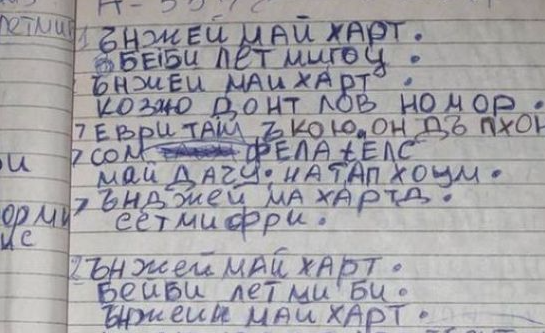 ЛЕТМИ
1 ЪНЖЕЙ МАЙ ХАРТ.
БЕЙБИ ЛЕТ МИГОУ.
ЪНЖЕЙ МАЙ ХАРТ.
КОЗЮ ДОНТ ЛОВ НОМОР.
7 ЕВРИ ТАЙМ Ъ КОЮ ОН ДЪ ПХОН
7 СОМ ФЕЛА ЕЛС
МАЙ ДАЧУ. НА ТАП ХОУМ.
7 ЪНДЖЕЙ МА ХАРТД.
СЕТ МИ ФРИ.
2 ЪНЖЕЙ МАЙ ХАРТ.
БЕЙБИ ЛЕТ МИ БИ.
ЪНЖЕЙН МАЙ ХАРТ.